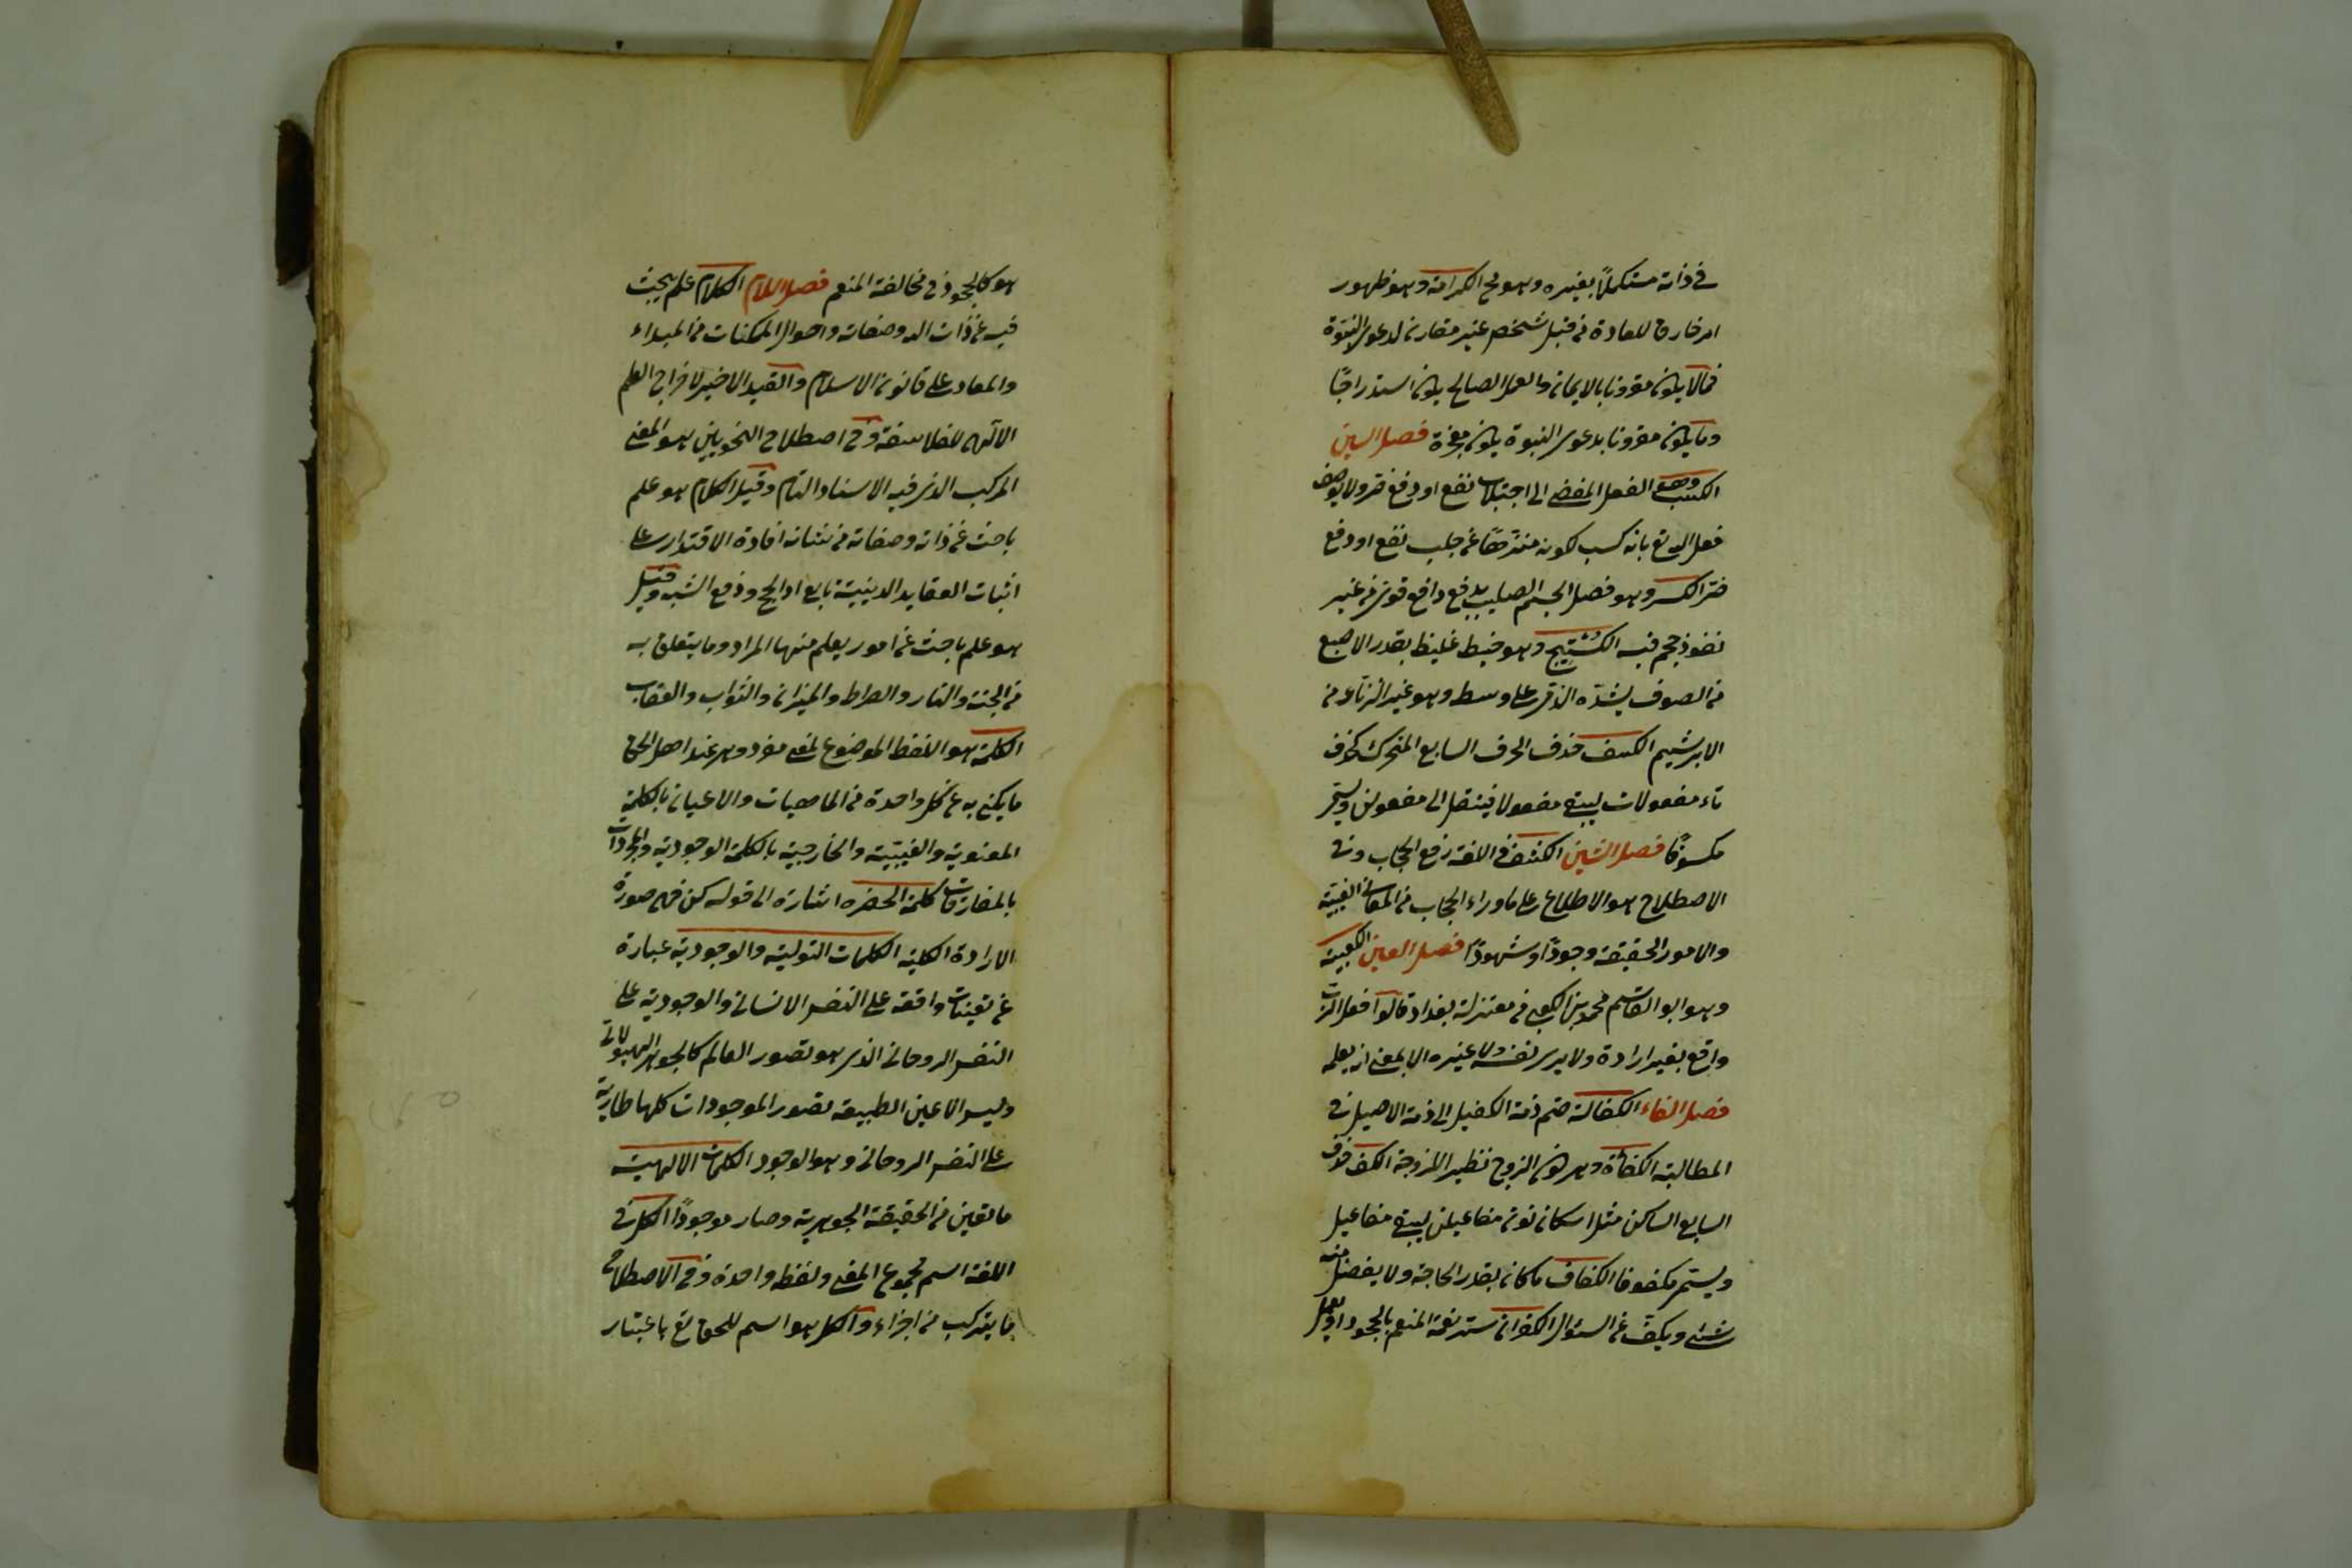 في ذاته مستكملاً بغيره وهو مح الكرامة وهو ظهور
امر خارق للعادة من قبل شخص غير مقارن لدعوى النبوة
فما لا يكون مقرونا بالايمان والعمل الصالح يكون استدراجًا
وما يكون مقرونا بدعوى النبوة يكون معجزة فصل السين
الكسب وهو الفعل المفضي الى اجتلاب نفع او دفع ضر ولا يوصف
فعل الله تع بانه كسب لكونه منزهًا عن جلب نفع او دفع
ضر الكسر وهو فصل الجسم الصليب بدفع دافع قوى من غير
نفوذ حجم فيه الكُستيج وهو خيط غليظ بقدر الاصبع
من الصوف يشدّه الذمى على وسط وهو غير الزنّار من
الابريشيم الكسف حذف الحرف السابع المتحرك كحذف
تاء مفعولات ليبقى مفعولا فينتقل الى مفعولن ويسمى
مكسوفًا فصل الشين الكشف في اللغة رفع الحجاب وفى
الاصطلاح هو الاطلاع على ما وراء الحجاب من المعانى الغيبية
والامور الحقيقة وجودًا وشهودًا فصل العين الكعبية
وهو ابو القاسم محمد بن الكعبى من معتزلة بغداد قالوا فعل الرب
واقع بغير ارادة ولا يرى نفسه ولا غيره الا بمعنى انه يعلمه
فصل الفاء الكفالة ضم ذمة الكفيل الى ذمة الاصيل فى
المطالبة الكفاءة وهى كون الزوج نظير اللزوجة الكف حذف
السابع الساكن مثل اسكان نون مفاعيلن ليبقى مفاعيل
ويسمى مكفوفا الكفاف ما كان بقدر الحاجة ولا يفضل منه
شئ ويكف عن السئوال الكفران ستر نعمة المنعم بالجحود او بعمل
هو كالجحود في مخالفة المنعم فصل اللام الكلام علم يبحث
فيه عن ذات الله وصفاته واحوال الممكنات من المبداء
والمعاد على قانون الاسلام والقيد الاخير لاخراج العلم
الالٓهى للفلاسفة وفى اصطلاح النحويين هو المعنى
المركب الذى فيه الاسناد التام وقيل الكلام هو علم
باحث عن ذاته وصفاته من شانه افادة الاقتدار على
اثبات العقايد الدينية بايراد الحج ودفع الشبه وقيل
هو علم باحث عن امور يعلم منها المراد وما يتعلق به
من الجنة والنار والصراط والميزان والثواب والعقاب
الكلمة هو اللفظ الموضوع لمعنى مفرد وهى عند اهل الحق
ما يكنى به عن كل واحدة من الماهيات والاعيان بالكلمة
المعنوية والغيبية والخارجية بالكلمة الوجودية والمجردات
بالمفارقات كلمة الحضره اشارة الى قوله كن فهى صورة
الارادة الكلية الكلمات القولية والوجودية عبارة
عن تعينات واقعة على النفس الانسانى والوجودية على
النفس الروحانى الذى هو تصور العالم كالجوهر الهيولانى
وليس الا عين الطبيعة تصور الموجودات كلها طارية
على النفس الروحانى وهو الوجود الكلمات الالهية
ما تعين من الحقيقة الجوهرية وصار موجودًا الكل فى
اللغة اسم لمجموع المعنى ولفظه واحدة وفى الاصطلاح
ما يتركب من اجزاء والكل هو اسم للحق تع باعتبار